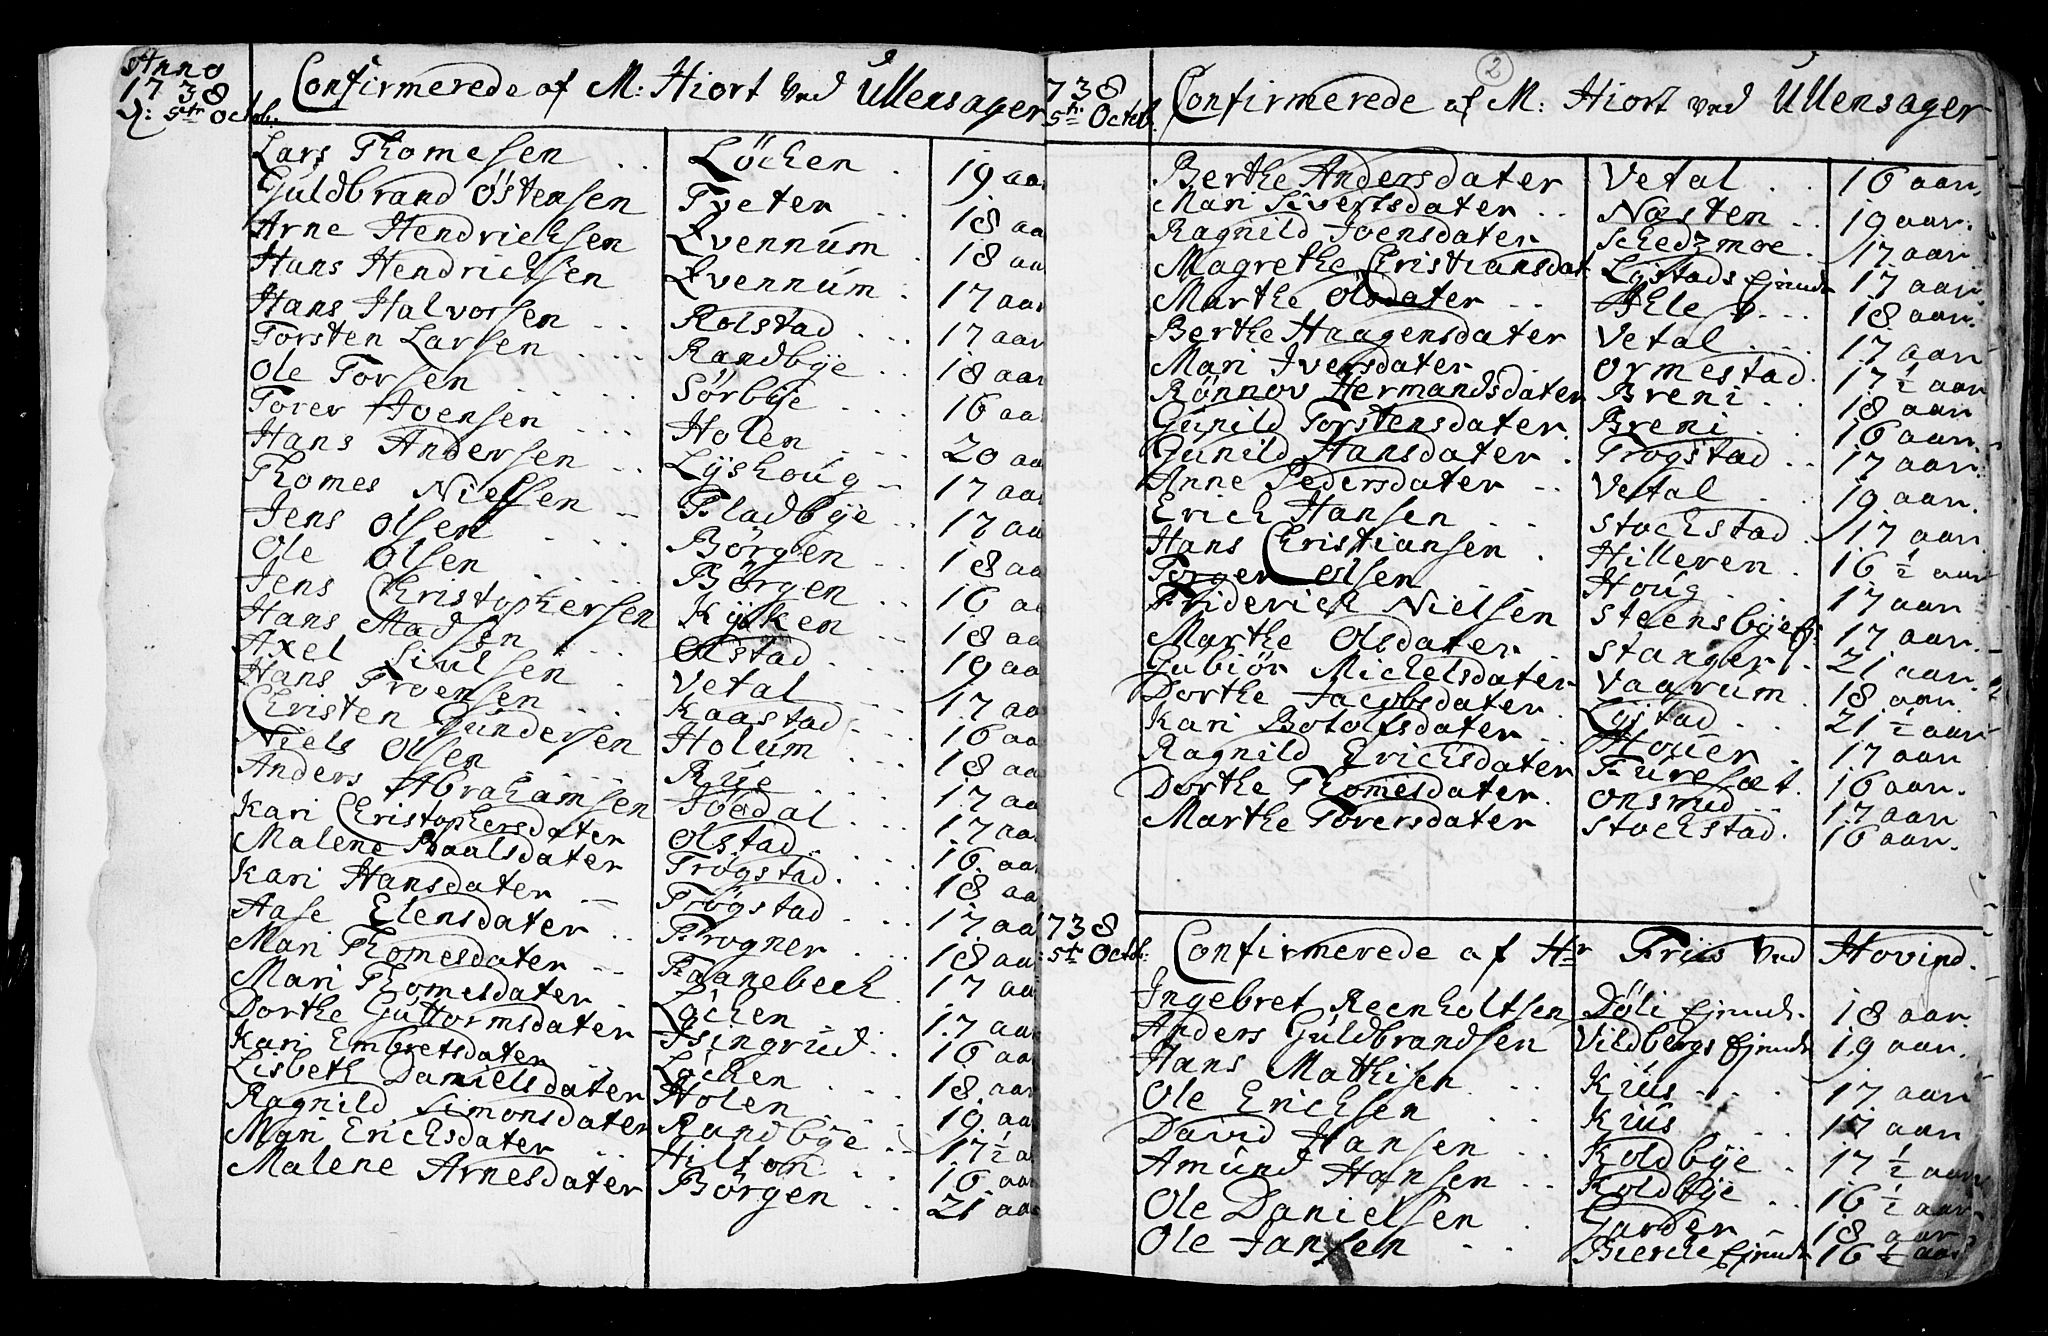 Anno
1738
d: 5te Octob.
Confirmerede af M: Hiort ved Ullensager
Lars Thomesen .. Löchen . 19 aa
Guldbrand Östensen Tveter .. 18 aa
Arne Hendrichsen Qvennum . 18 aa
Hans Hendrichsen Qvennum . 17 aar
Hans Halvorsen .. Rolstad ... 17 aar
Torsten Larsen ... Randbÿe .. 18 aar
Ole Torsen .... Sörbÿe .... 16 aa
Torer Joensen ... Holen .... 20 aa
Hans Andersen .. Lÿshoug -- 17 aa
Thomes Nielsen -- Fladbÿe .. 17 aa
Jens Olsen .... Börgen .. 18 aa
Ole Olsen .... Börgen .. 16 aa
Jens Christophersen Kÿken -- 18 aa
Hans Madsen ... Olstad .... 19 aa
Axel Siulsen . Vetal --- 17 aa
Hans Troensen ... Kaastad ... 16 aa
Christen Gundersen Holum ... 18 aa
Niels Olsen .... Rüe .... 17 aa
Anders Abrahamsen Joedal ... 17 aa
Kari Christophersdater Olstad .... 16 aa
Malene Paalsdater Trögstad. .. 18 aa
Kari Hansdater -- Trögstad ... 17 aa
Aase Elensdater .. Frogner ... 18 aa
Mari Thomesdater -- Raanebech . 17 aa
Mari Thomesdater . Löchen .. 17 aa
Dorthe Guttormsdater Isingrud .. 16 aa
Kari Embretsdater .. Löchen ... 18 aa
Lisbeth Danielsdater Holen ... 19 aa
Ragnild Simonsdater Randbÿe .. 17 1/2 a
Mari Erichsdater .. Hilton .. 16 aa
Malene Arnesdater Börgen .. 21 aa
2
738
5te Octob.
Confirmerede af M: Hiort ved Ullensager
Berthe Andersdater Vetal .. 16 aar.
Mari Sivertsdater .. Næsten .. 19 aar.
Ragnild Joensdater Schedzmoe . 17 aar
Magrethe Christiansdat Lÿstads Ejend. 17 aar
Marthe Olsdater .. ... 18 aar.
Berthe Haagensdater Vetal ... 17 aar
Mari Iversdater . Ormestad . 17 1/2 aar
Rönnov Hermandsdater Breni .. 18 aar
Gunild Torstensdater. Breni .. 16 aar.
Gunild Hansdater . Trogstad .. 17 aar.
Anne Pedersdater .. Vestal .. 19 aar.
Erich Hansen .. Stochstad . 17 aar.
Hans Christiansen . Hilleren . 16 1/2 aar
Torger Olsen .. Houg .. 17 aar
Friderich Nielsen Steensbÿe Ej. 17 aar.
Marthe Olsdater . Stanger . 21 aar.
Gubiör Michelsdater Vaarum . 18 aar.
Dorthe Jacobsdater. Lÿstad .. 21 1/2 aar
Kari Bototsdater .. Houer . 17 aar
Ragnild Erichsdater Furesæt. 16 aar.
Dorthe Thomesdater. Onsrud .. 17 aar
Marthe Torersdater Stochstad. 16 aar.
738
5te Octob:
Confirmerede af Hr Friis ved Hovind.
Ingebret Reenholtsen Döli Ejend. 18 aar.
Anders Guldbrandsen Vildbergs Ejend. 19 aar.
Hans Mathisen .. Kiüs ... 17 aar
Ole Erichsen .. Kiüs .. 17 aar
David Hansen .. Koldbÿe . 17 1/2 aar
Amund Hansen .. Koldbÿe .. 16 1/2 aar
Ole Danielsen . Garder - 18 aar
Ole Jansen .. Ejend. 16 1/2 aar